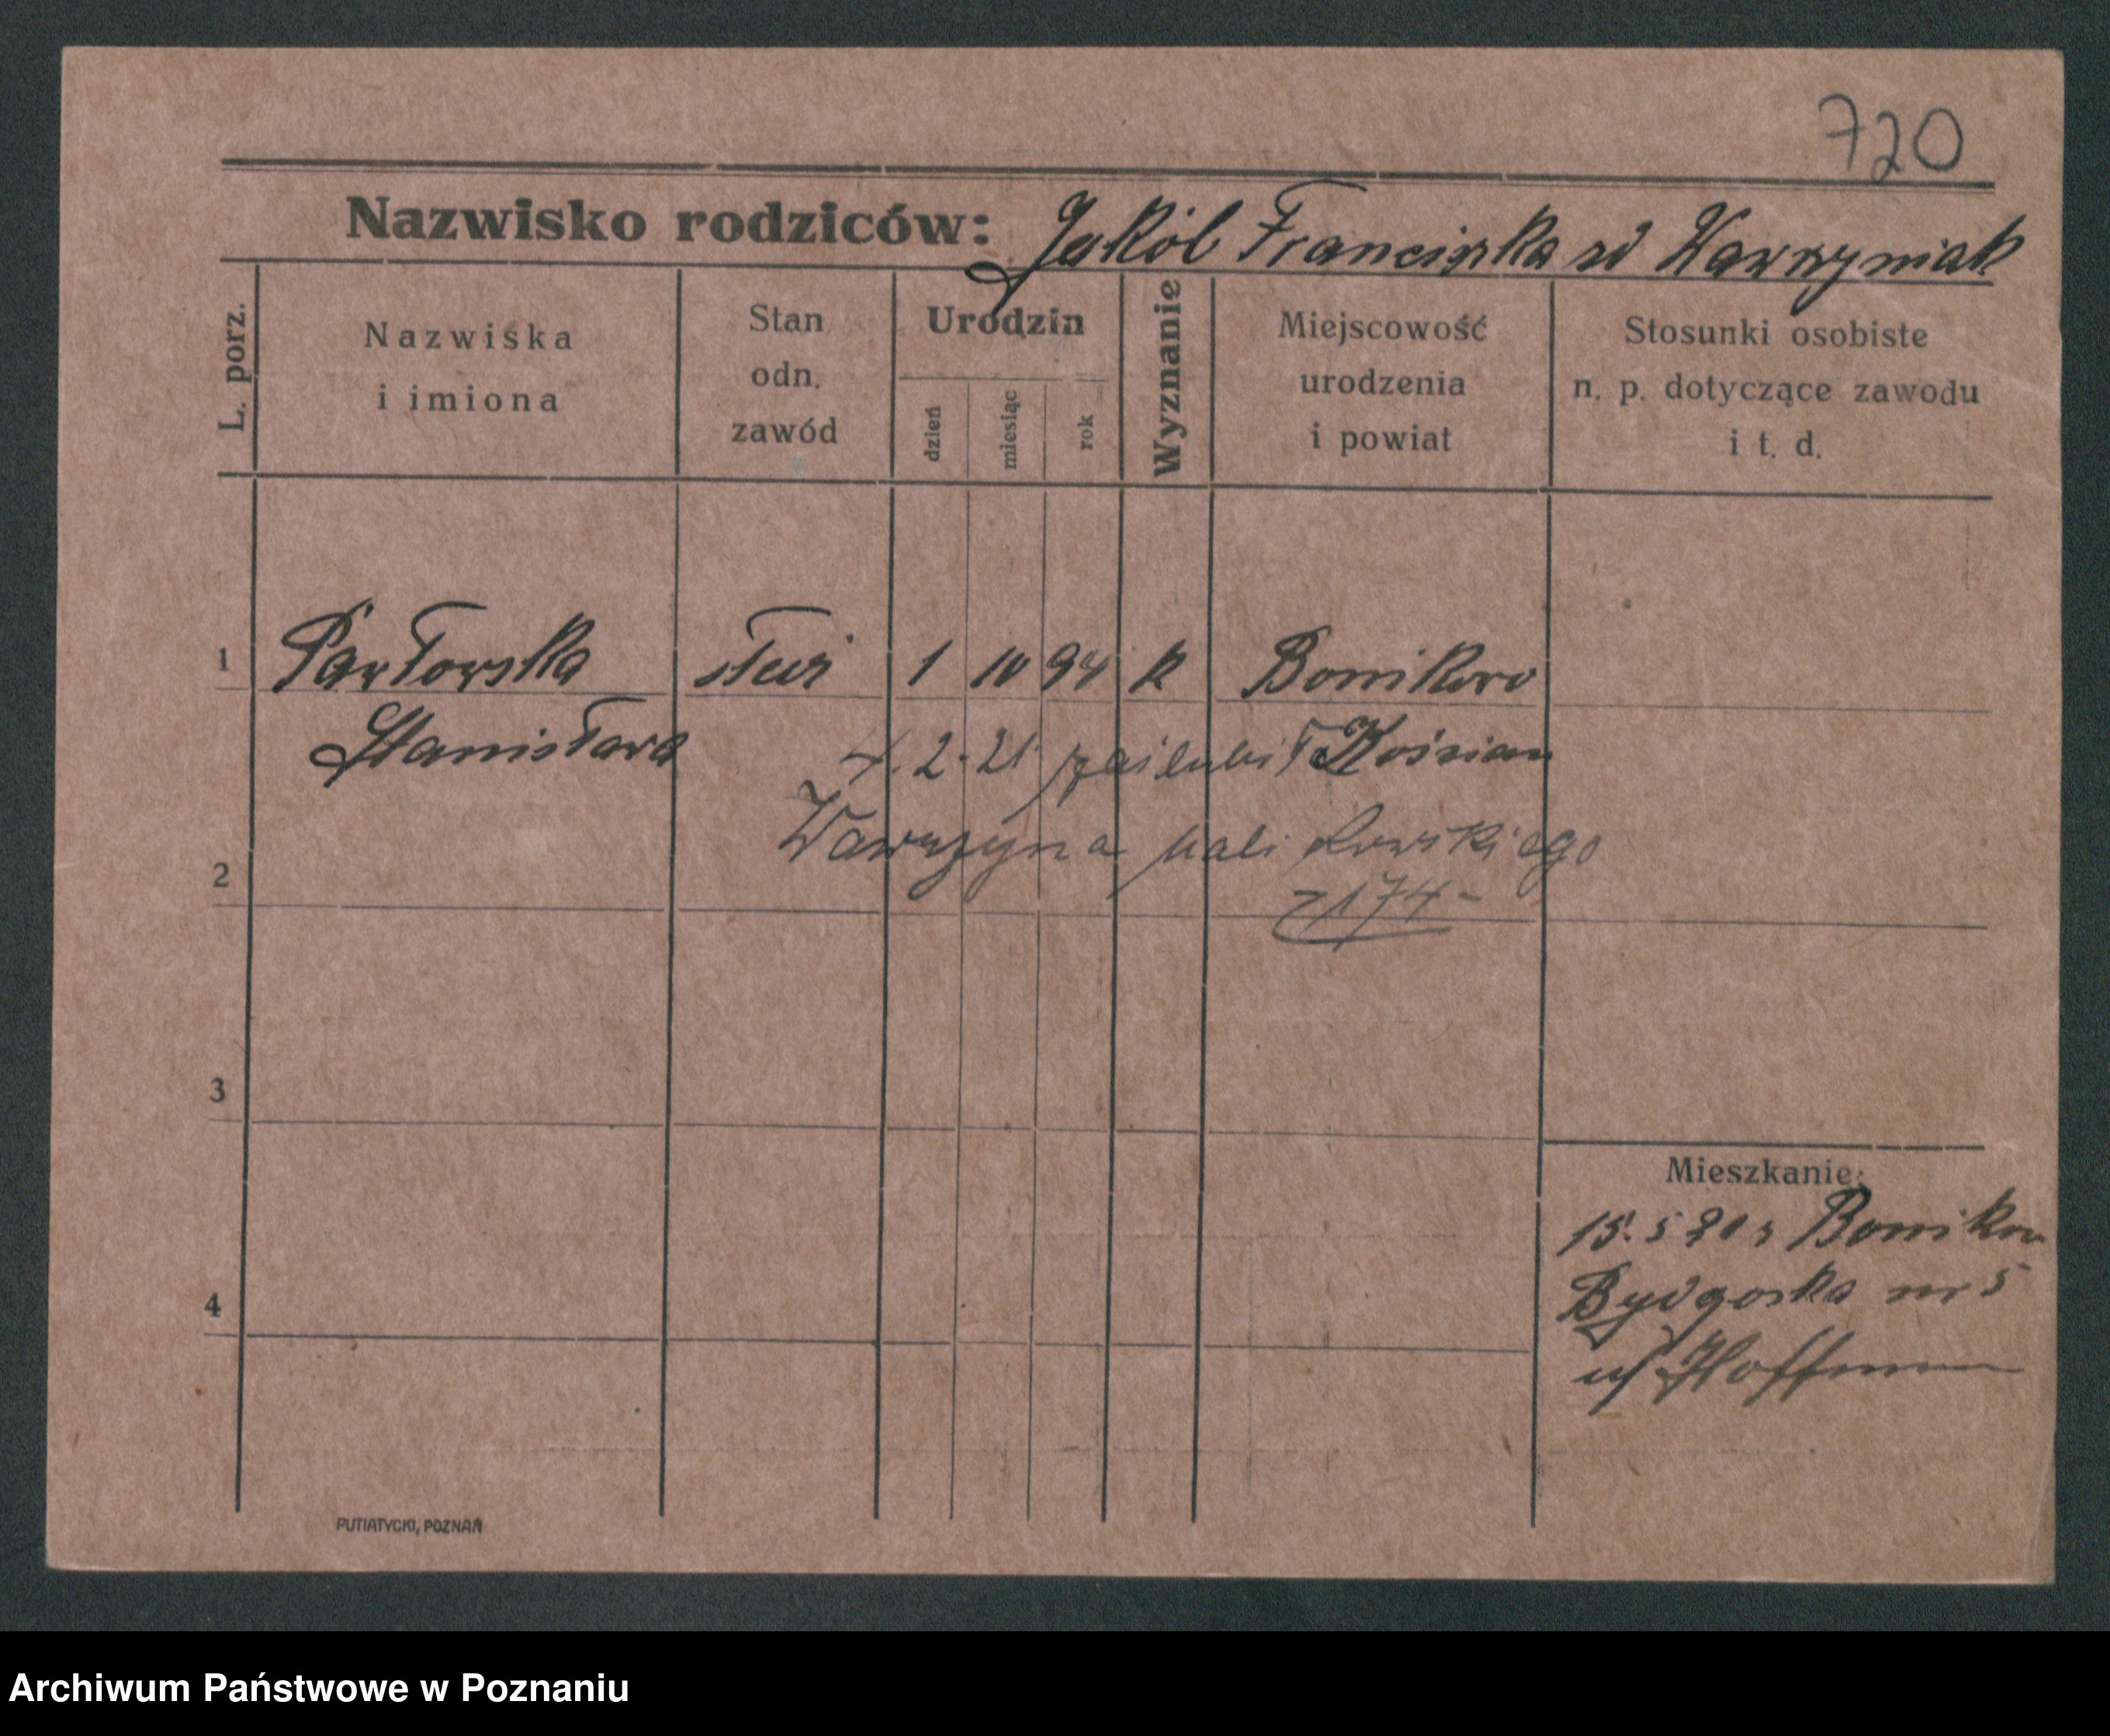 720
Nazwisko rodziców: Jakób Franciszka zd Wawrzyniak
L. porz.
Nazwiska
i imiona
Stan
odn.
zawód
Urodzin
dzień
miesiąc
rok
Wyznanie
Miejscowość
urodzenia
i powiat
Stosunki osobiste
n. p. dotyczące zawodu
i t. d.
1 Pawłowska 1 10 94 k Bonikowo
Stanisława Kościan
4.2.21 zaślubił
Wawrzyna
2
3
4
Mieszkanie:
15.5 Bonikowo
Bydgoska nr 5
Hoffmann
PUTIATYCKI, POZNAŃ
Archiwum Państwowe w Poznaniu